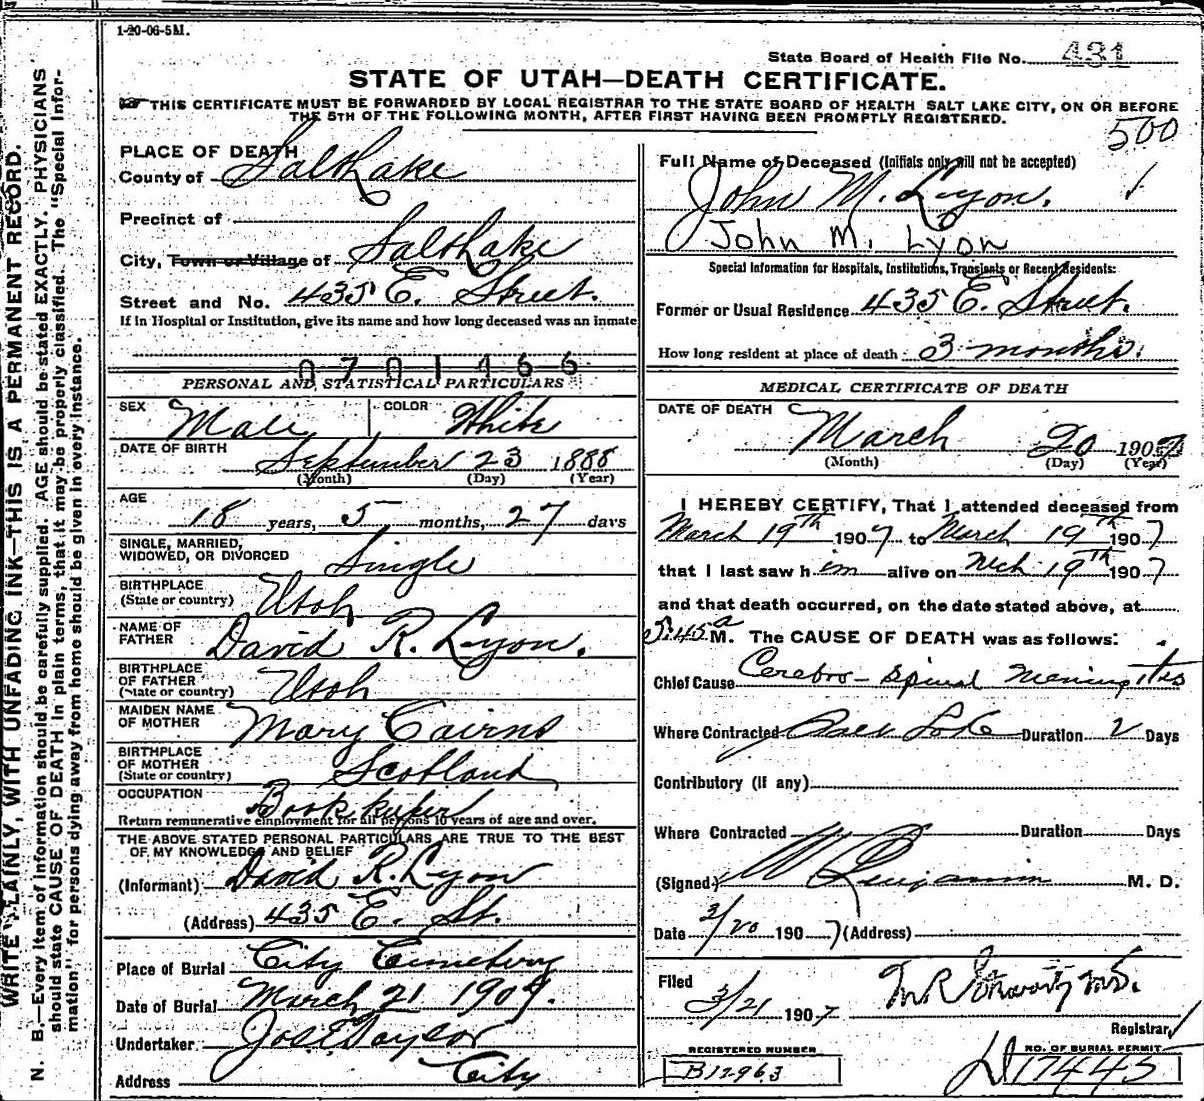 1-20-06-5M.
State Board of Health File No. 431
STATE OF UTAH—DEATH CERTIFICATE.
THIS CERTIFICATE MUST BE FORWARDED BY LOCAL REGISTRAR TO THE STATE BOARD OF HEALTH SALT LAKE CITY, ON OR BEFORE
THE 5TH OF THE FOLLOWING MONTH, AFTER FIRST HAVING BEEN PROMPTLY REGISTERED.
500
PLACE OF DEATH
County of Salt Lake
Precinct of
City, Town or Village of Salt Lake
Street and No. 435 E. Street.
If in Hospital or Institution, give its name and how long deceased was an inmate
0701466
PERSONAL AND STATISTICAL PARTICULARS
SEX Male COLOR White
DATE OF BIRTH September 23 1888
(Month) (Day) (Year)
AGE 18 years, 5 months, 27 days
SINGLE, MARRIED,
WIDOWED, OR DIVORCED Single
BIRTHPLACE
(State or country) Utah
NAME OF
FATHER David R. Lyon.
BIRTHPLACE
OF FATHER
(State or country) Utah
MAIDEN NAME
OF MOTHER Mary Cairns
BIRTHPLACE
OF MOTHER
(State or country) Scotland
OCCUPATION Book keeper
Return remunerative employment for all persons 10 years of age and over.
THE ABOVE STATED PERSONAL PARTICULARS ARE TRUE TO THE BEST
OF MY KNOWLEDGE AND BELIEF
(Informant) David R. Lyon
(Address) 435 E. St.
Place of Burial City Cemetery
Date of Burial March 21 1907.
Undertaker Jos E Taylor
Address City
Full Name of Deceased (Initials only will not be accepted)
John M. Lyon.
John M. Lyon
Special Information for Hospitals, Institutions, Transients or Recent Residents:
Former or Usual Residence 435 E. Street.
How long resident at place of death 3 months.
MEDICAL CERTIFICATE OF DEATH
DATE OF DEATH March 20 1907
(Month) (Day) (Year)
I HEREBY CERTIFY, That I attended deceased from
March 19th 1907 to March 19th 1907
that I last saw him alive on Mch 19th 1907
and that death occurred, on the date stated above, at
5:45 a M. The CAUSE OF DEATH was as follows:
Chief Cause Cerebro-Spinal Meningitis
Where Contracted Salt Lake Duration 2 Days
Contributory (if any)
Where Contracted Duration Days
(Signed) Benjamin M. D.
Date 3/20 1907 (Address)
Filed 3/21 1907
Registrar
REGISTERED NUMBER
B12963
NO. OF BURIAL PERMIT
D17445
WRITE PLAINLY, WITH UNFADING INK—THIS IS A PERMANENT RECORD.
N. B.—Every item of information should be carefully supplied. AGE should be stated EXACTLY. PHYSICIANS
should state CAUSE OF DEATH in plain terms, that it may be properly classified. The "Special Infor-
mation" for persons dying away from home should be given in every instance.